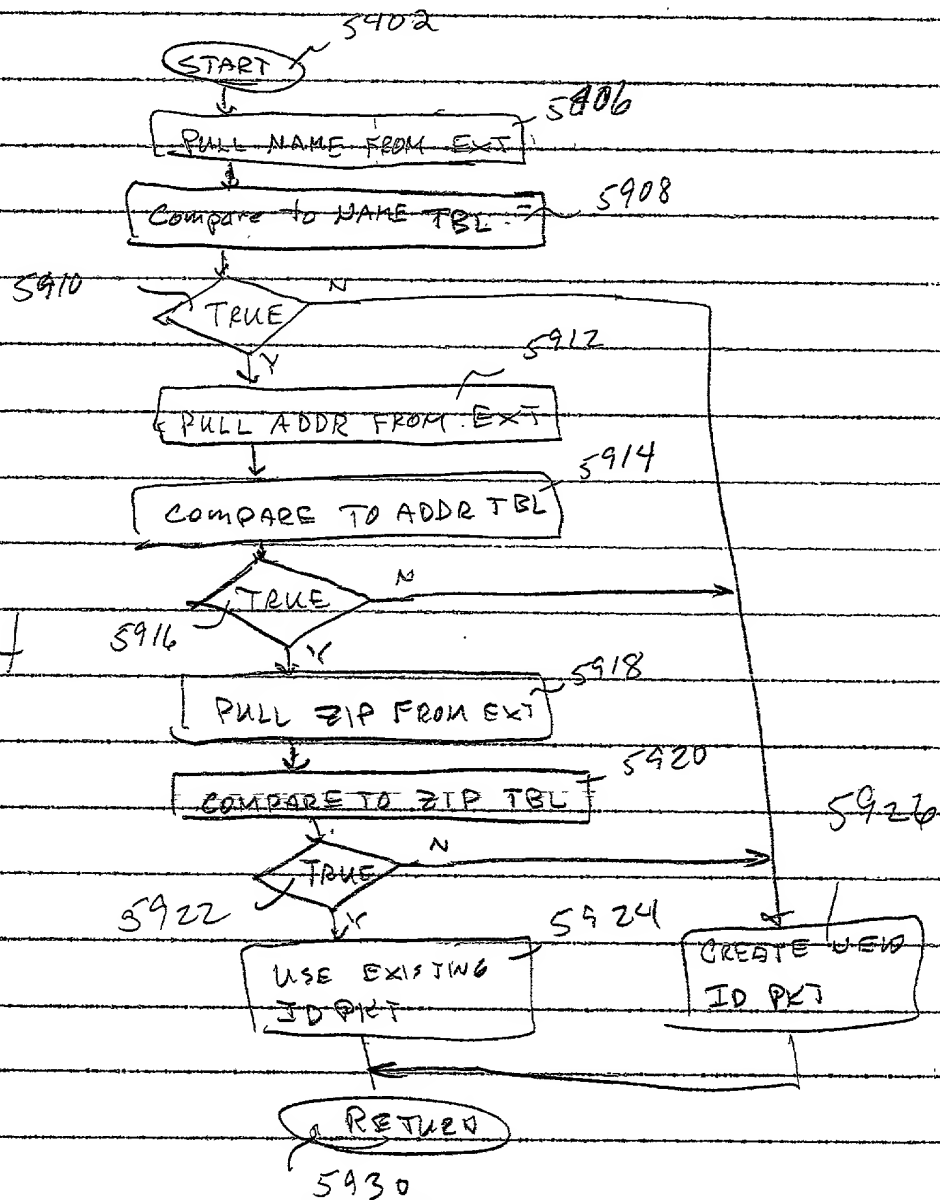 5902
START
5906
PULL NAME FROM EXT
5908
Compare to NAME TBL
5910
TRUE
N
Y
5912
PULL ADDR FROM EXT
5914
COMPARE TO ADDR TBL
N
TRUE
5916
Y
5918
PULL ZIP FROM EXT
5920
COMPARE TO ZIP TBL
5926
N
TRUE
5922
Y
5924
USE EXISTING
ID PKT
CREATE NEW
ID PKT
RETURN
5930